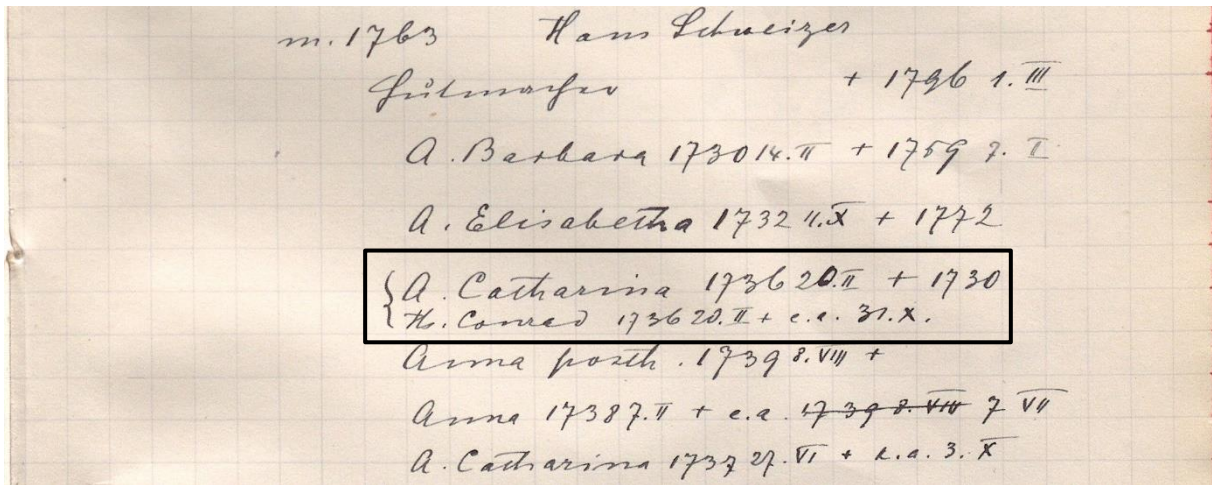 m. 1763 Hans Schweizer
Hutmacher + 1796 1. III
A. Barbara 1730 14. II + 1759 7. I
A. Elisabetha 1732 11. X + 1772
A. Catharina 1736 20. II + 1730
H. Conrad 1736 20. II + e.a. 31. X.
Anna posth. 1739 8. VIII +
Anna 1738 7. II + e.a. 1739 8. VIII 7 VII
A. Catharina 1737 27. VI + e.a. 3. X